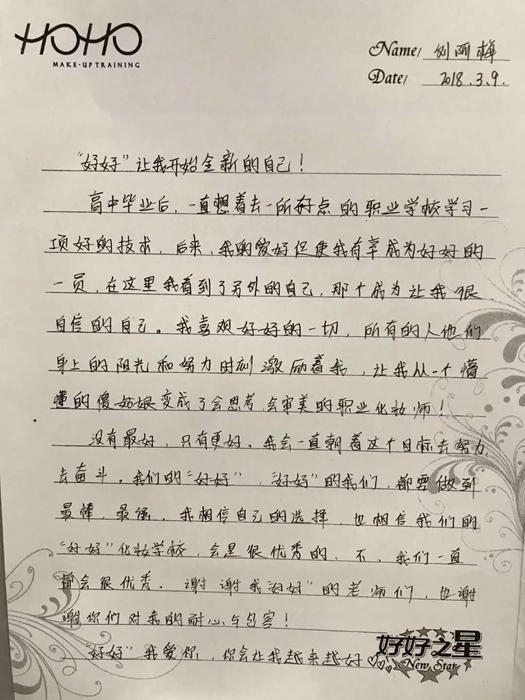 HOHO
MAKE-UP TRAINING
Name/ 刘丽梅
Date/ 2018.3.9.
"好好"让我开始全新的自己！
高中毕业后，一直想着去一所好点的职业学校学习一
项好的技术，后来，我的爱好促使我有幸成为好好的
一员，在这里我看到了另外的自己，那个成为让我很
自信的自己。我喜欢好好的一切，所有的人他们
身上的阳光和努力时刻激励着我，让我从一个懵
懂的傻姑娘变成了会思考，会审美的职业化妆师！
没有最好，只有更好。我会一直朝着这个目标去努力，
去奋斗。我们的"好好"，"好好"的我们，都要做到
最棒，最强。我相信自己的选择，也相信我们的
"好好"化妆学校，会是很优秀的，不、我们一直
都会很优秀。谢谢我"好好"的老师们，也谢
谢你们对我的耐心与包容！
"好好"我爱你，你会让我越来越好
好好之星
New Star